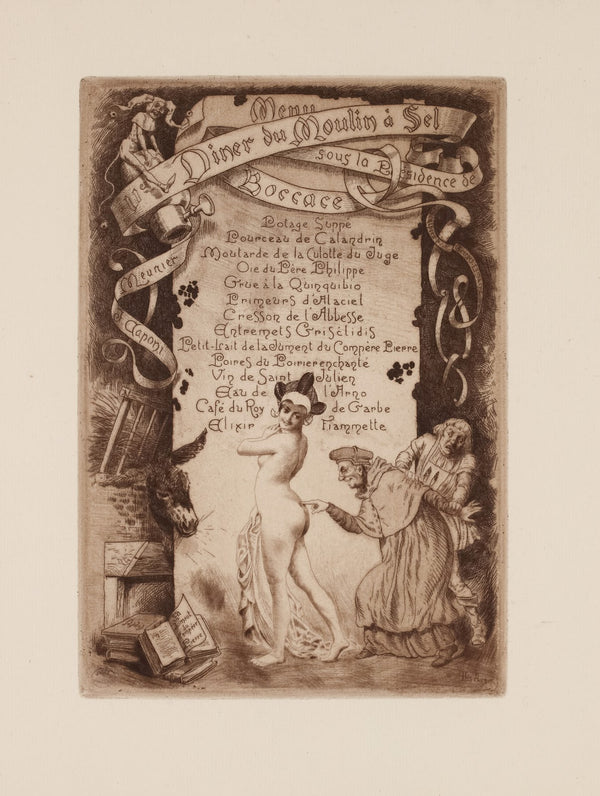 Menu
Diner du Moulin à Sel
sous la Présidence de
Boccace
Meunier
d'Aponi
Potage Suppé
Pourceau de Calandrin
Moutarde de la Culotte du Juge
Oie du Père Philippe
Grue à la Quinquibio
Primeurs d'Alaciel
Cresson de l'Abbesse
Entremets Grisélidis
Petit-lait de la Jument du Compère Pierre
Poires du Poirier enchanté
Vin de Saint Julien
Eau de l'Arno
Café du Roy de Garbe
Elixir Fiammette
Jument
du
Compère
Pierre